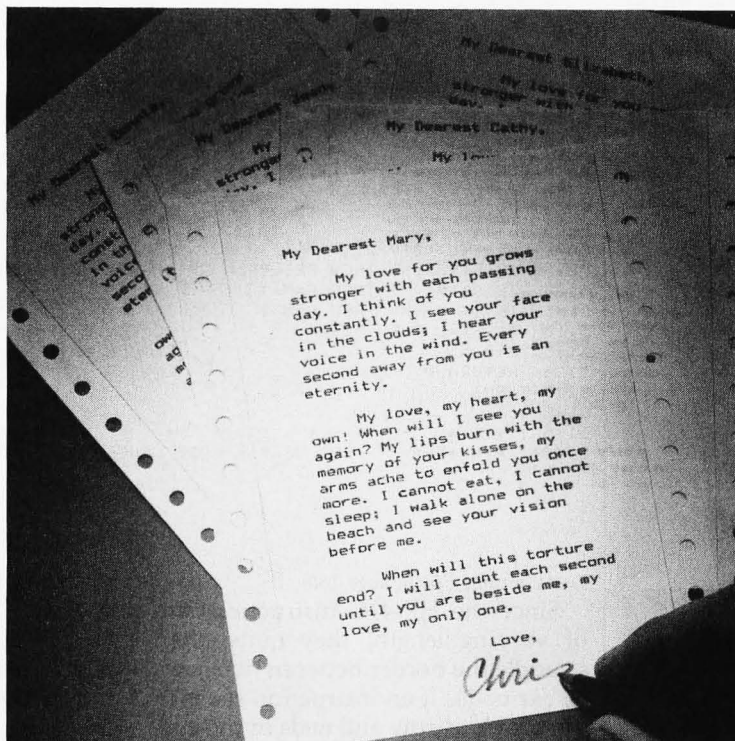 My Dearest Elizabeth,
My love for you
stronger with
day.
My Dearest
grows
My Dearest
My
stronger
day, I
My Dearest Cathy,
My
My
day.
in th
voic
seco
eter
My Dearest Mary,
My love for you grows
stronger with each passing
day. I think of you
constantly. I see your face
in the clouds; I hear your
voice in the wind. Every
second away from you is an
eternity.
My love, my heart, my
own! When will I see you
again? My lips burn with the
memory of your kisses, my
arms ache to enfold you once
more. I cannot eat, I cannot
sleep; I walk alone on the
beach and see your vision
before me.
When will this torture
end? I will count each second
until you are beside me, my
love, my only one.
Love,
Chris